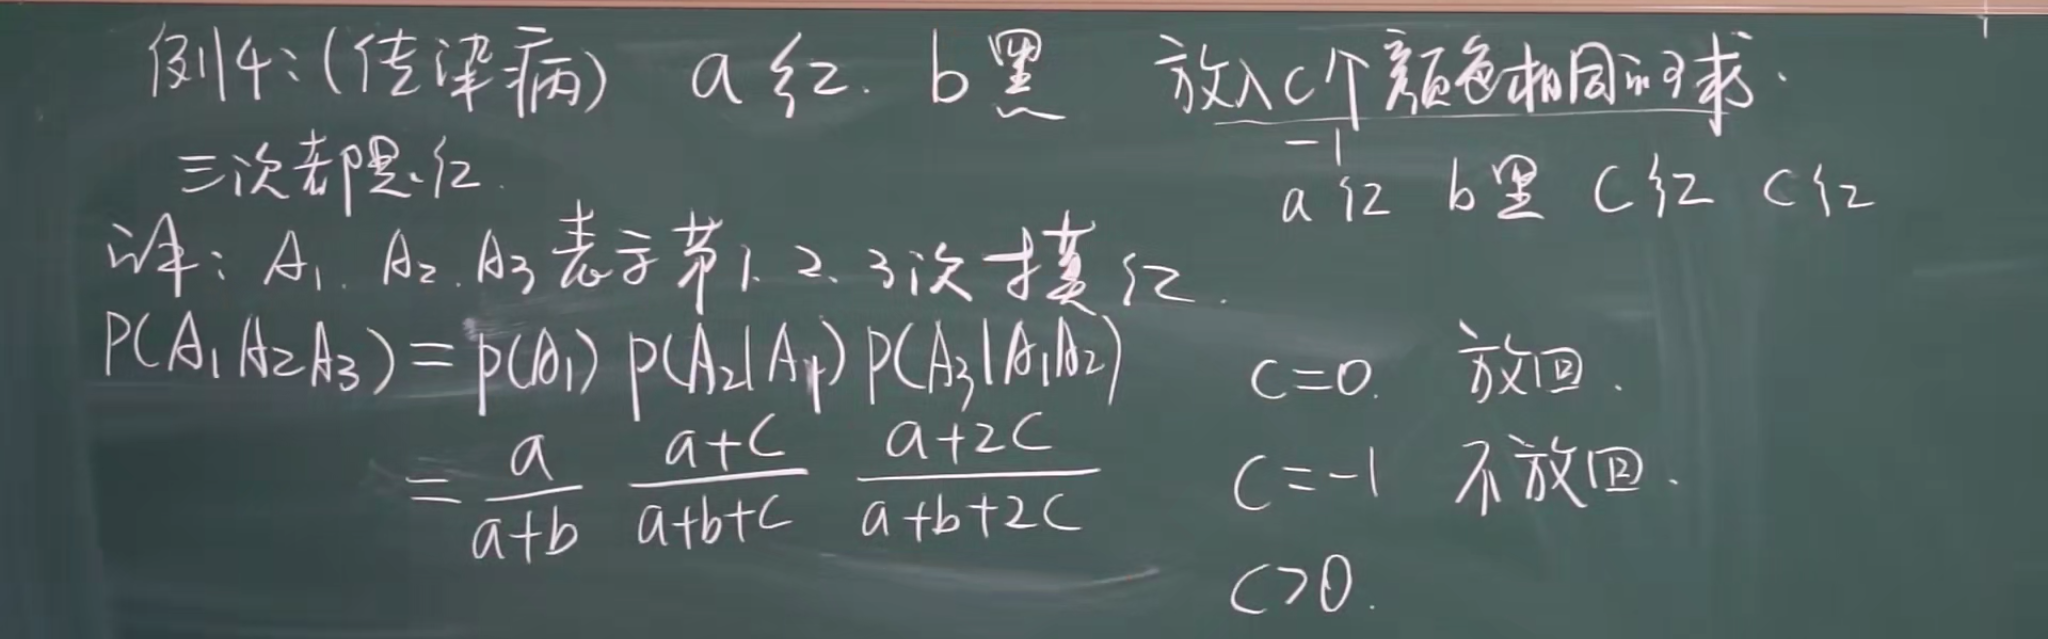 例4:(传染病) a红. b黑 放入c个颜色相同的球.
三次都是红.
-1
a红 b黑 c红 c红
解: A₁. A₂. A₃表示第1. 2. 3次摸红.
P(A₁A₂A₃) = P(A₁) P(A₂|A₁) P(A₃|A₁A₂)
= a/(a+b) (a+c)/(a+b+c) (a+2c)/(a+b+2c)
c=0. 放回.
c=-1 不放回.
c>0.